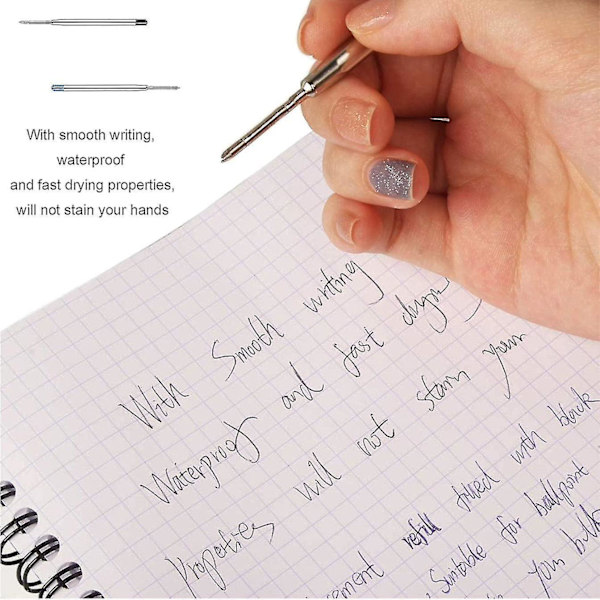 With smooth writing,
waterproof
and fast drying properties,
will not stain your hands
With Smooth writing
Waterproof and fast drying
Propeties will not stain your
refill filled with black
, Suitable for ballpoint
your